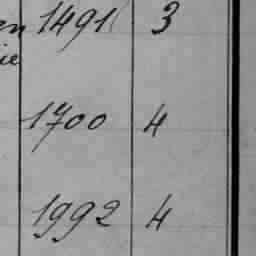 en 1491 3
ie
1700 4
1992 4